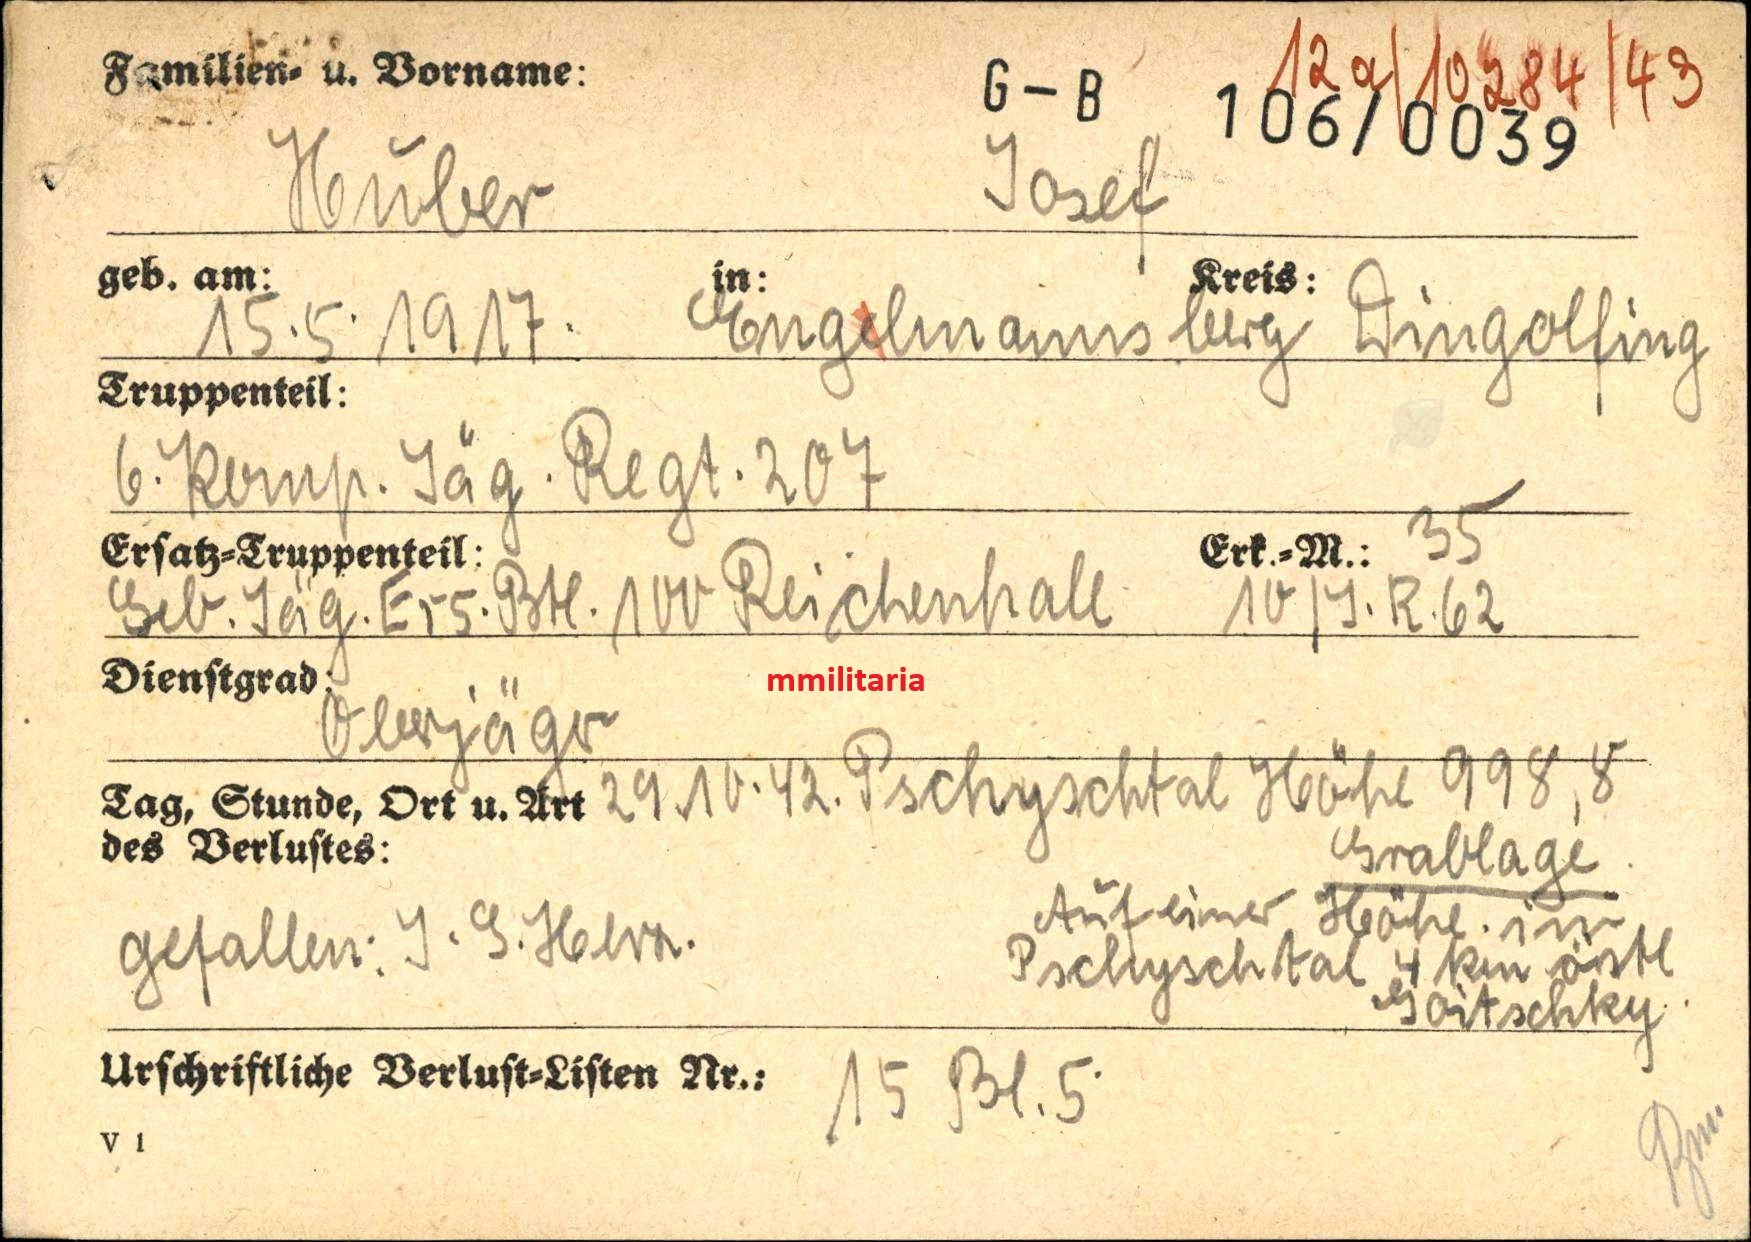 Familien- u. Vorname:
G-B
12a/10284/43
106/0039
Huber Josef
geb. am: in: Kreis:
15.5.1917. Engelmannsberg Dingolfing
Truppenteil:
6. Komp. Jäg. Regt. 207
Ersatz-Truppenteil: Erk.-M.: 35
Geb. Jäg. Ers. Btl. 100 Reichenhall 10/J.R.62
Dienstgrad:
Oberjäger
mmilitaria
Tag, Stunde, Ort u. Art 29.10.42. Pschyschtal Höhe 998,8
des Verlustes:
Grablage
Auf einer Höhe im
gefallen: J.G.
Pschyschtal 4 km östl
Goitschky.
Urschriftliche Verlust-Listen Nr.: 15 Bl. 5
V 1